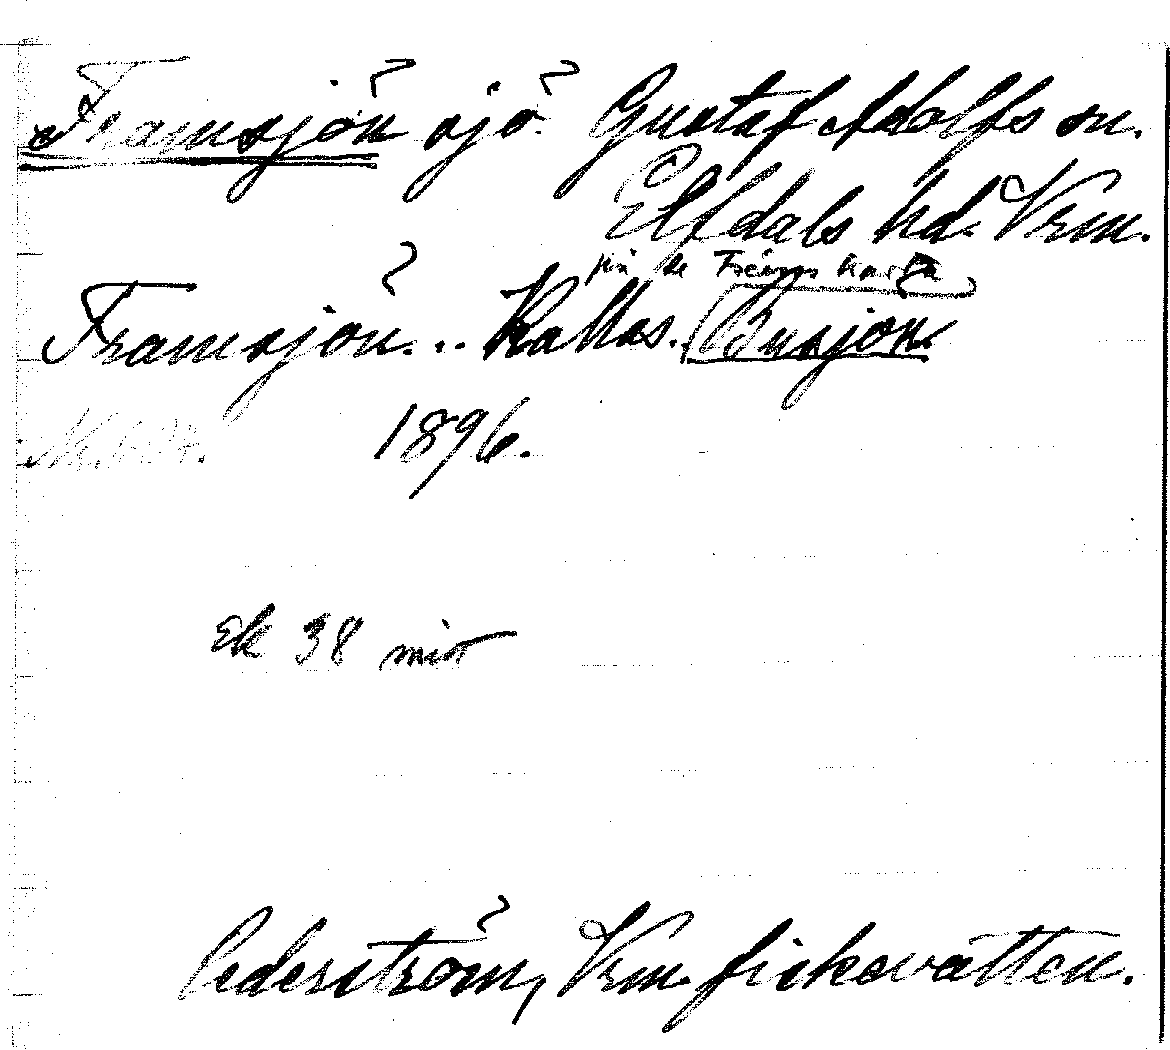 Framsjön sjö. Gustaf Adolfs sn.
Elfdals hd. Vrm.
på de Frèeses karta
Framsjön... Kallas.. Busjön
1896.
Ek 38 mir
Cederström, Vrm. fiskevatten.